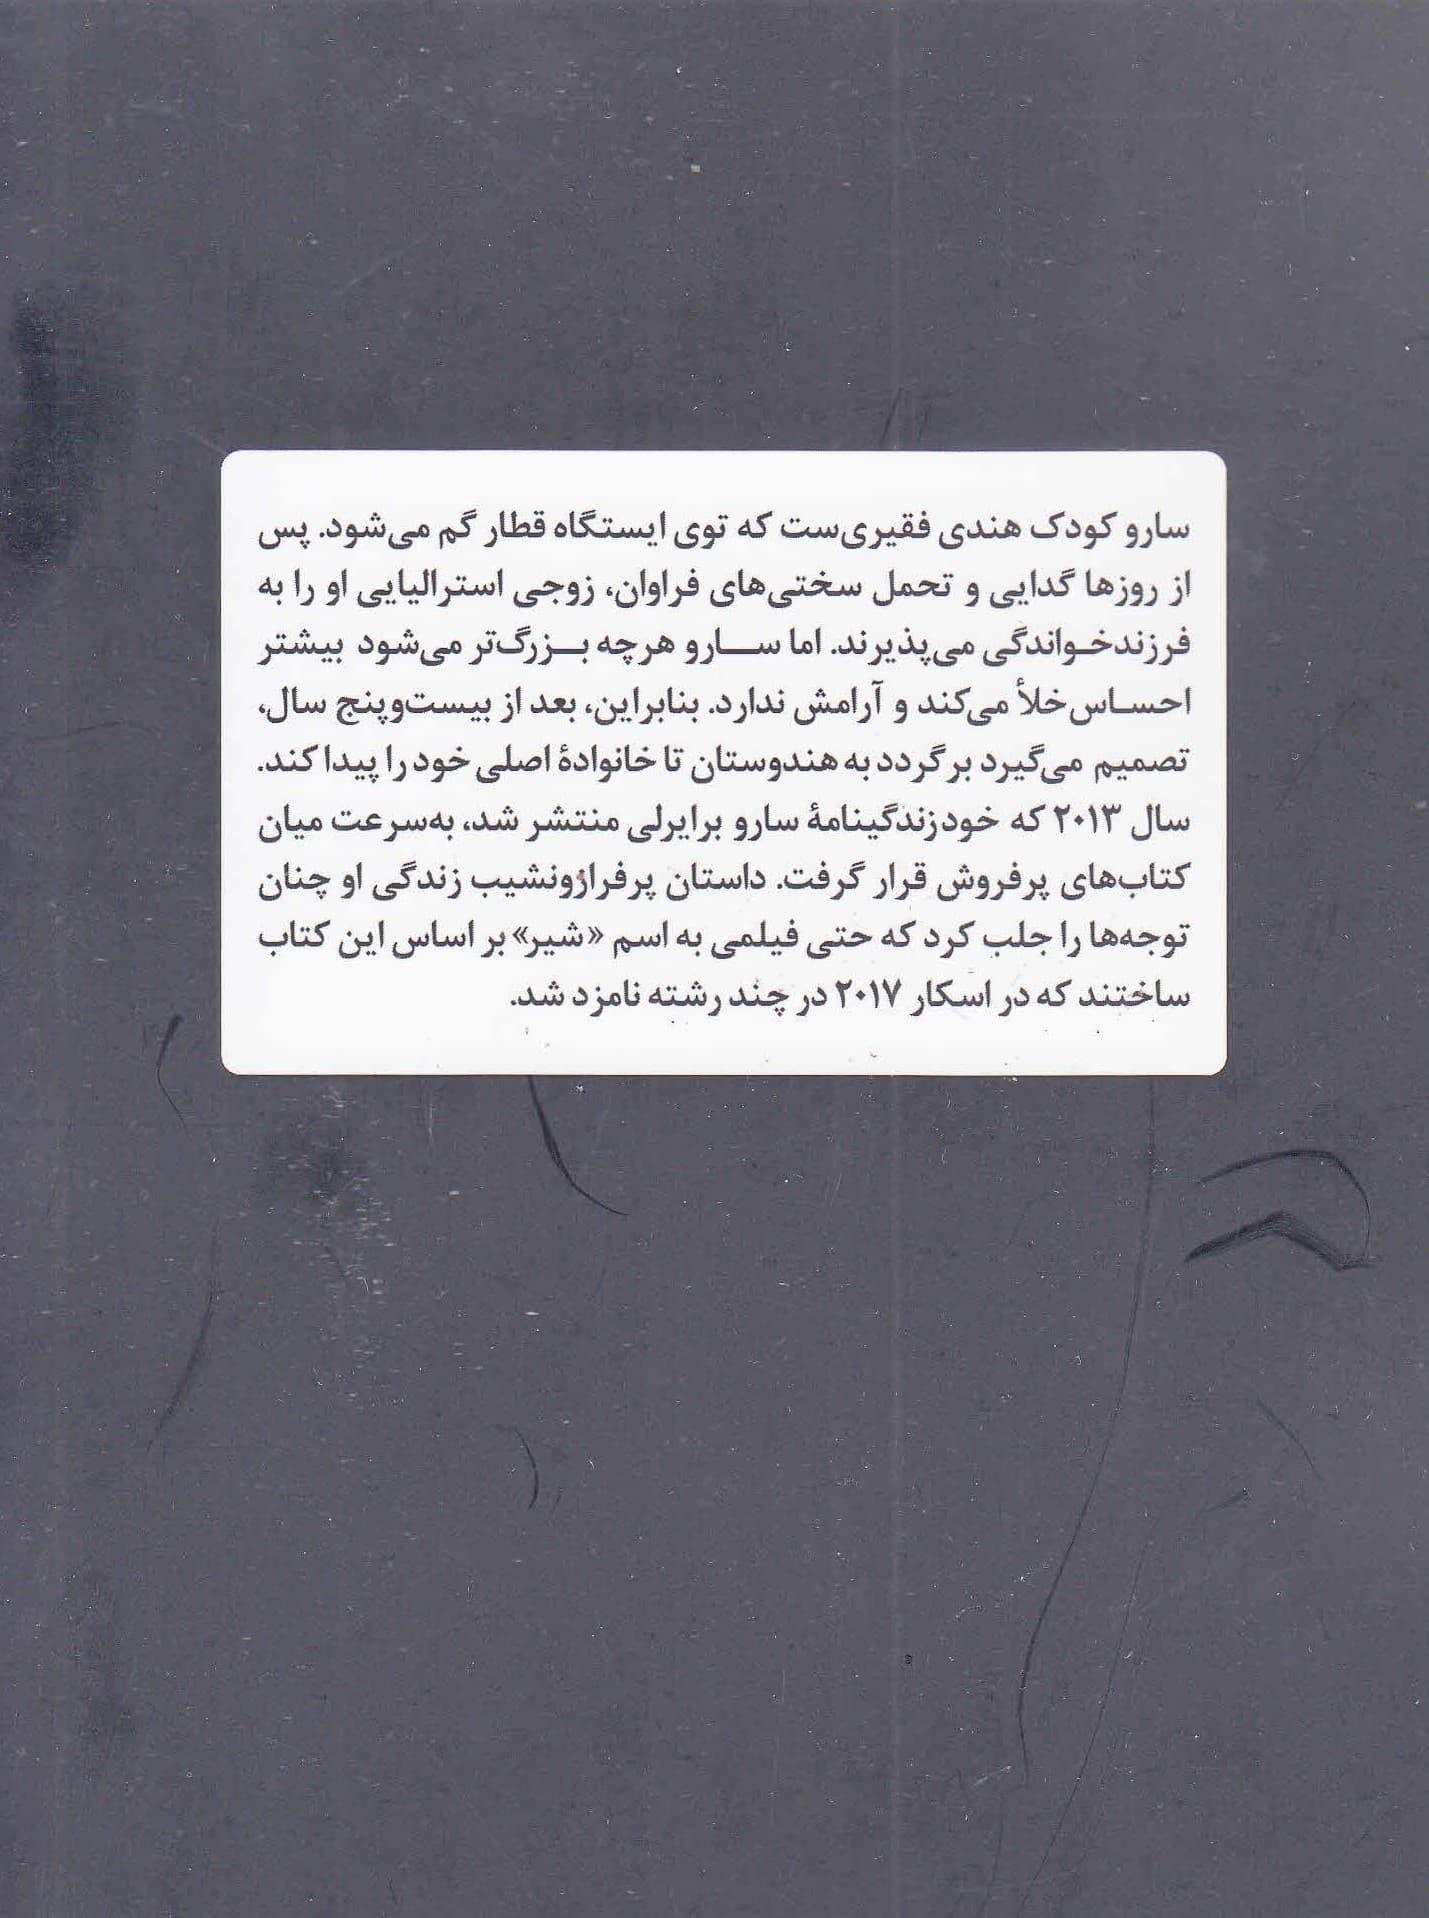 سارو کودک هندی فقیری‌ست که توی ایستگاه قطار گم می‌شود. پس
از روزها گدایی و تحمل سختی‌های فراوان، زوجی استرالیایی او را به
فرزندخـواندگی می‌پذیرند. اما ســـارو هرچه بـــزرگ‌تر می‌شود بیشتر
احســاس خلأ می‌کند و آرامش ندارد. بنابراین، بعد از بیست‌وپنج سال،
تصمیم می‌گیرد برگردد به هندوستان تا خانوادهٔ اصلی خود را پیدا کند.
سال ۲۰۱۳ که خودزندگینامهٔ سارو برایرلی منتشر شد، به‌سرعت میان
کتاب‌های پرفروش قرار گرفت. داستان پرفرازونشیب زندگی او چنان
توجه‌ها را جلب کرد که حتی فیلمی به اسم «شیر» بر اساس این کتاب
ساختند که در اسکار ۲۰۱۷ در چند رشته نامزد شد.